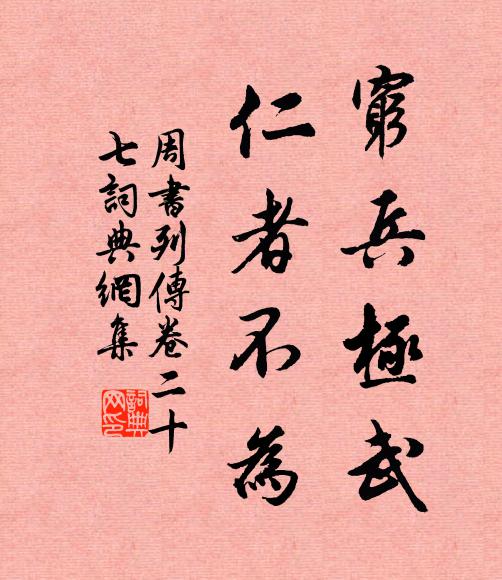 窮兵極武
仁者不為
周書列傳卷二十
七詞典網集
詞典
网印